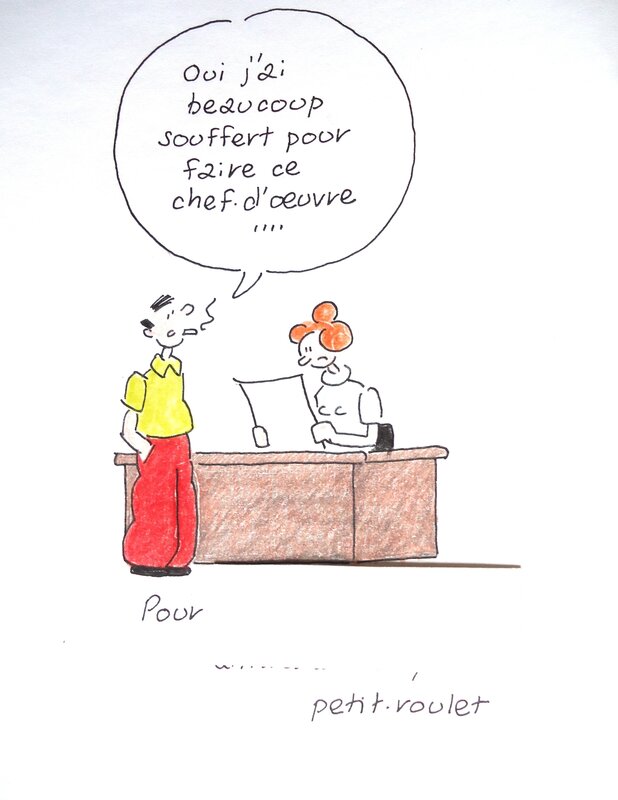 Oui j'ai
beaucoup
souffert pour
faire ce
chef.d'œuvre
''''
Pour
petit.roulet